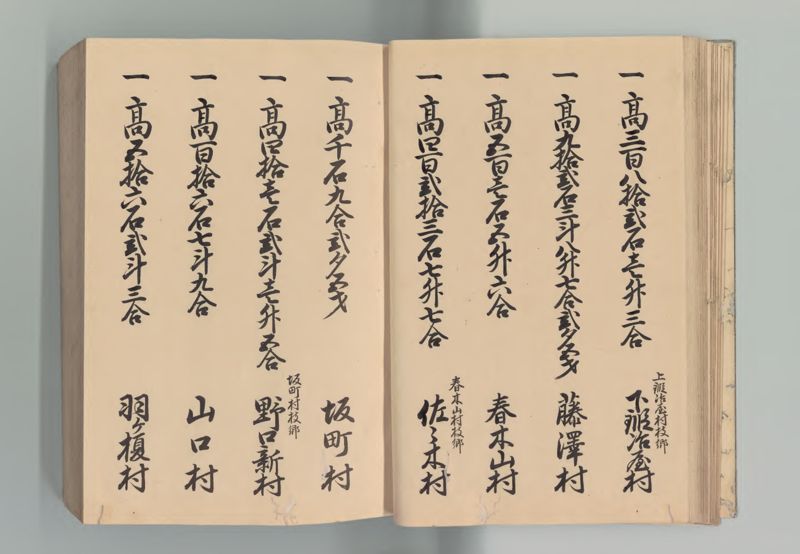 一 高三百八拾弐石壱升三合
上鍛冶屋村枝郷
下鍛冶屋村
一 高九拾弐石三斗八升七合弐夕五才
藤澤村
一 高五百壱石五升六合
春木山村
一 高四百弐拾三石七升七合
春木山村枝郷
佐々木村
一 高千石九合弐夕五才
坂町村
一 高四拾壱石弐斗壱升五合
坂町村枝郷
野口新村
一 高百拾六石七斗九合
山口村
一 高五拾六石弐斗三合
羽ヶ榎村